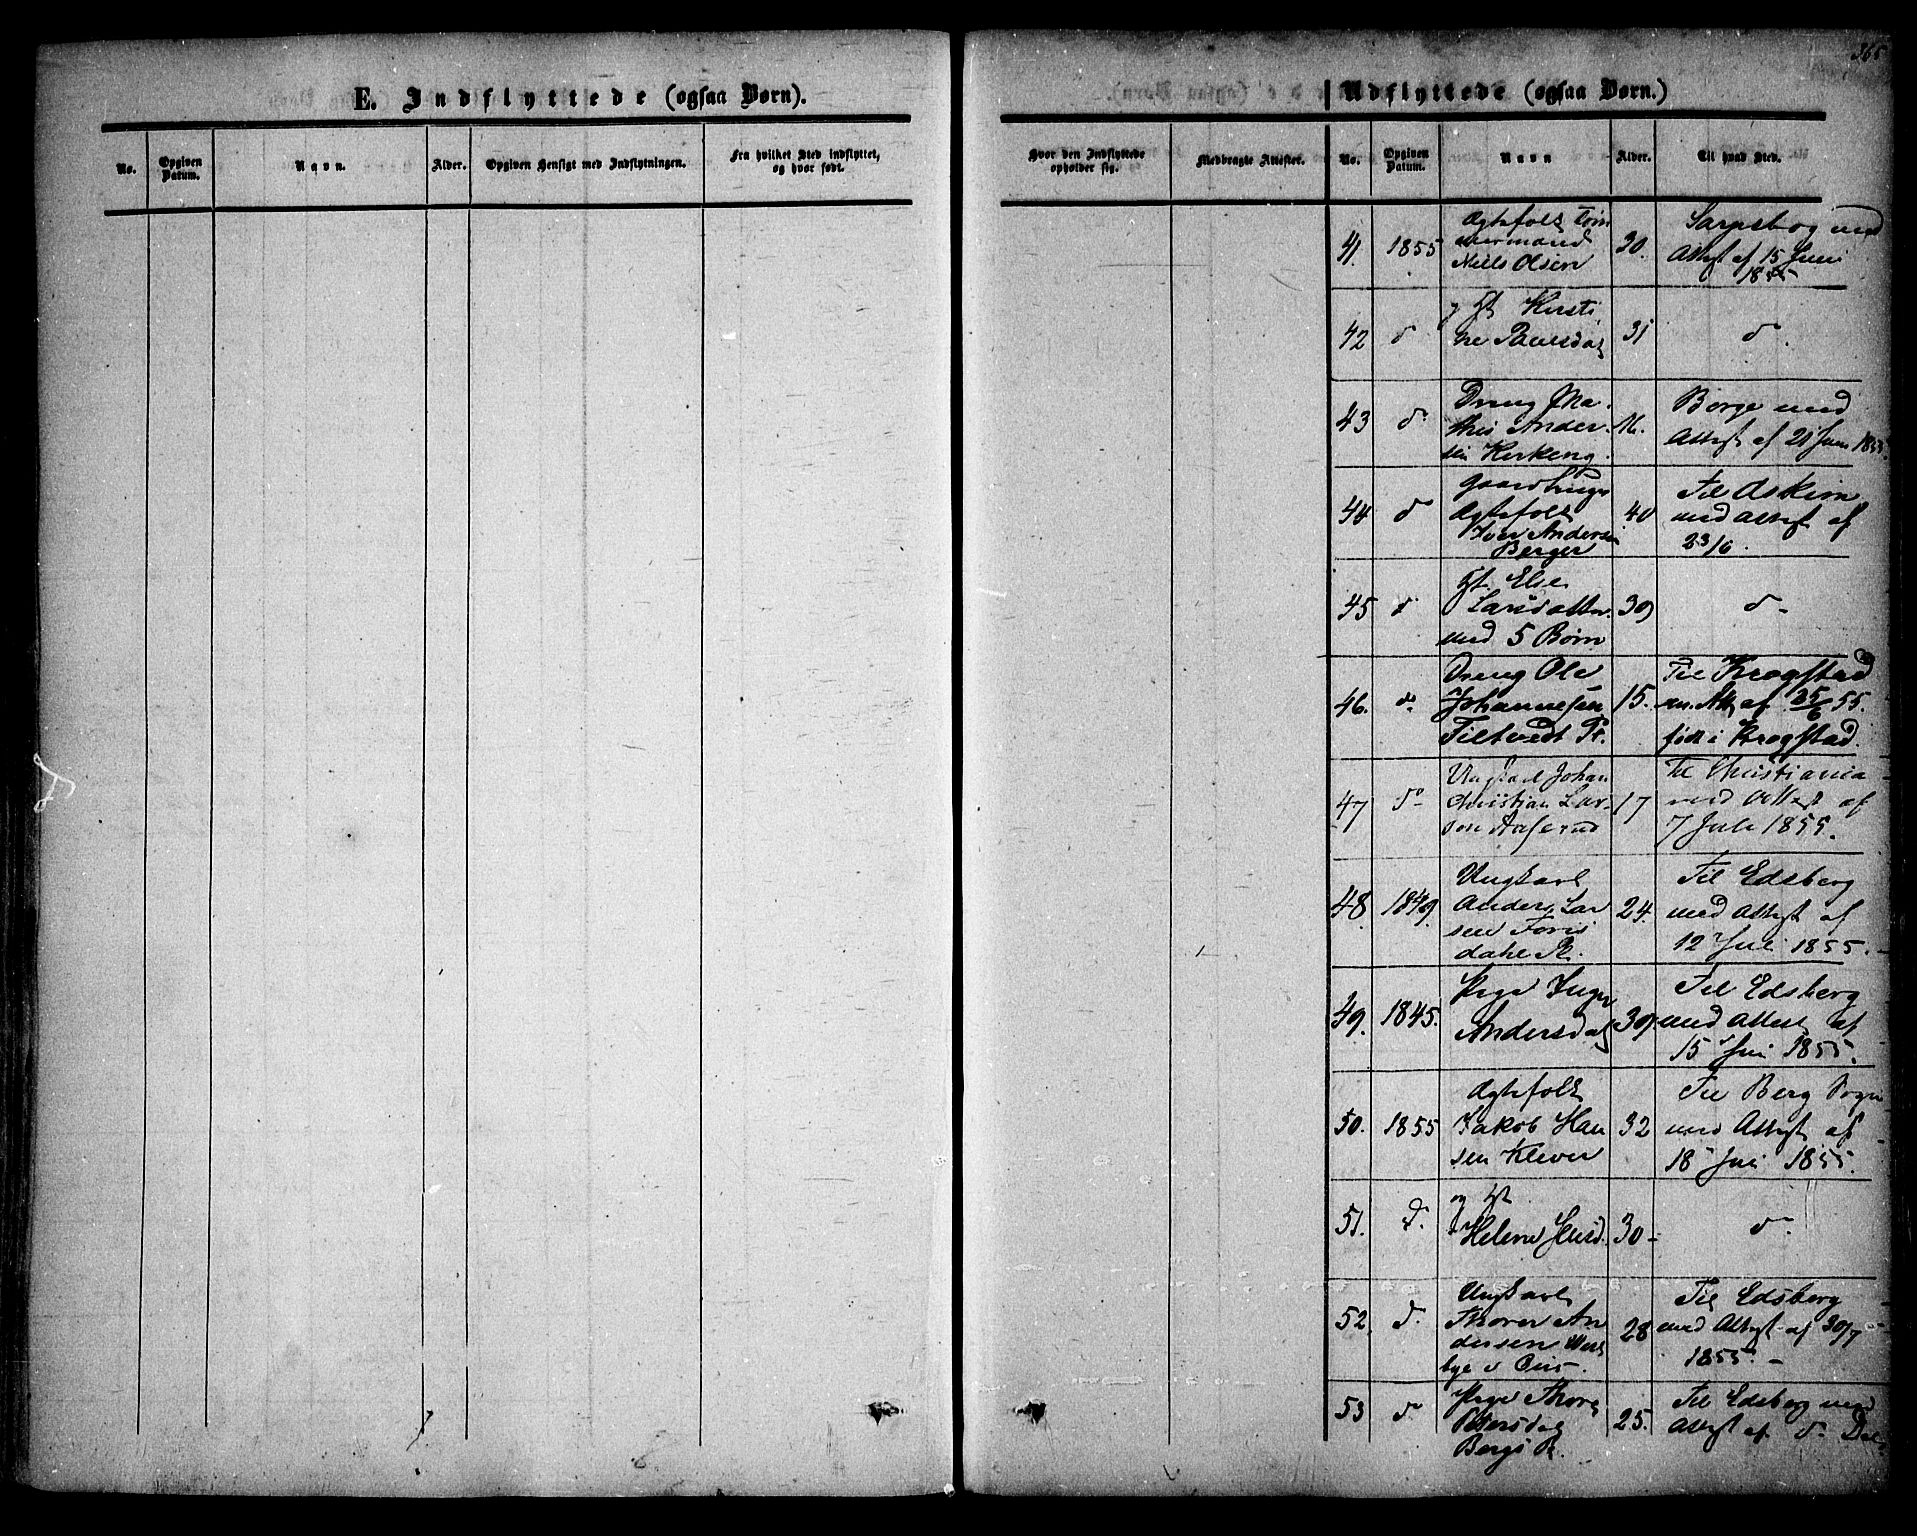 365
E. Indflyttede (ogsaa Børn).
Udflyttede (ogsaa Børn.)
No. Opgiven Datum. Navn. Alder. Opgiven Hensigt med Indflytningen. Fra hvilket Sted indflyttet, og hvor født.
Hvor den Indflyttede opholder sig. Medbragte Attester. No. Opgiven Datum. Navn Alder. Til hvad Sted.
41. 1855 Ægtefolk Tøm
mermand
Niels Olsen 30. Sarpsborg med
Attest af 15 Juni
1855
42 do og Kirsti
ne Paulsdat 31 do.
43 do Dreng Ma
this Ander
sen Kirkeng. 16. Borge med
Attest af 21 Juni 1855
44 do Gaardbruger
Ægtefolk
Iver Andersen
Berger 40 Til Askim
med Attest af
23/6.
45 do Else
Larsdatter
med 5 Børn 39 do
46. do Dreng Ole
Johannesen
Tiltvedt Pl. 15. Til Krogstad
m. Att. af 25/6 55.
født i Krogstad.
47 do Ungkarl Johan
Christian Lar
sen 17 Til Christiania
med Attest af
7 Juli 1855.
48. 1849. Ungkarl
Anders Lar
sen 24. Til Edsberg
med Attest af
12 Juli 1855.
49. 1845. Pige Inger
Andersdat 39. Til Edsberg
med Attest af
15 Juli 1855.
50. 1855 Ægtefolk
Jakob Han
sen Klever 32 Til Berg Sogn
med Attest af
18 Juli 1855.
51. do og
Helene 30 do
52. do Ungkarl
Thorer An
dersen 28 Til Edsberg
med Attest af 30/7
1855.
53 do Pige
Petersdat
Bergs Pl. 25. Til Edsberg med
Attest af do